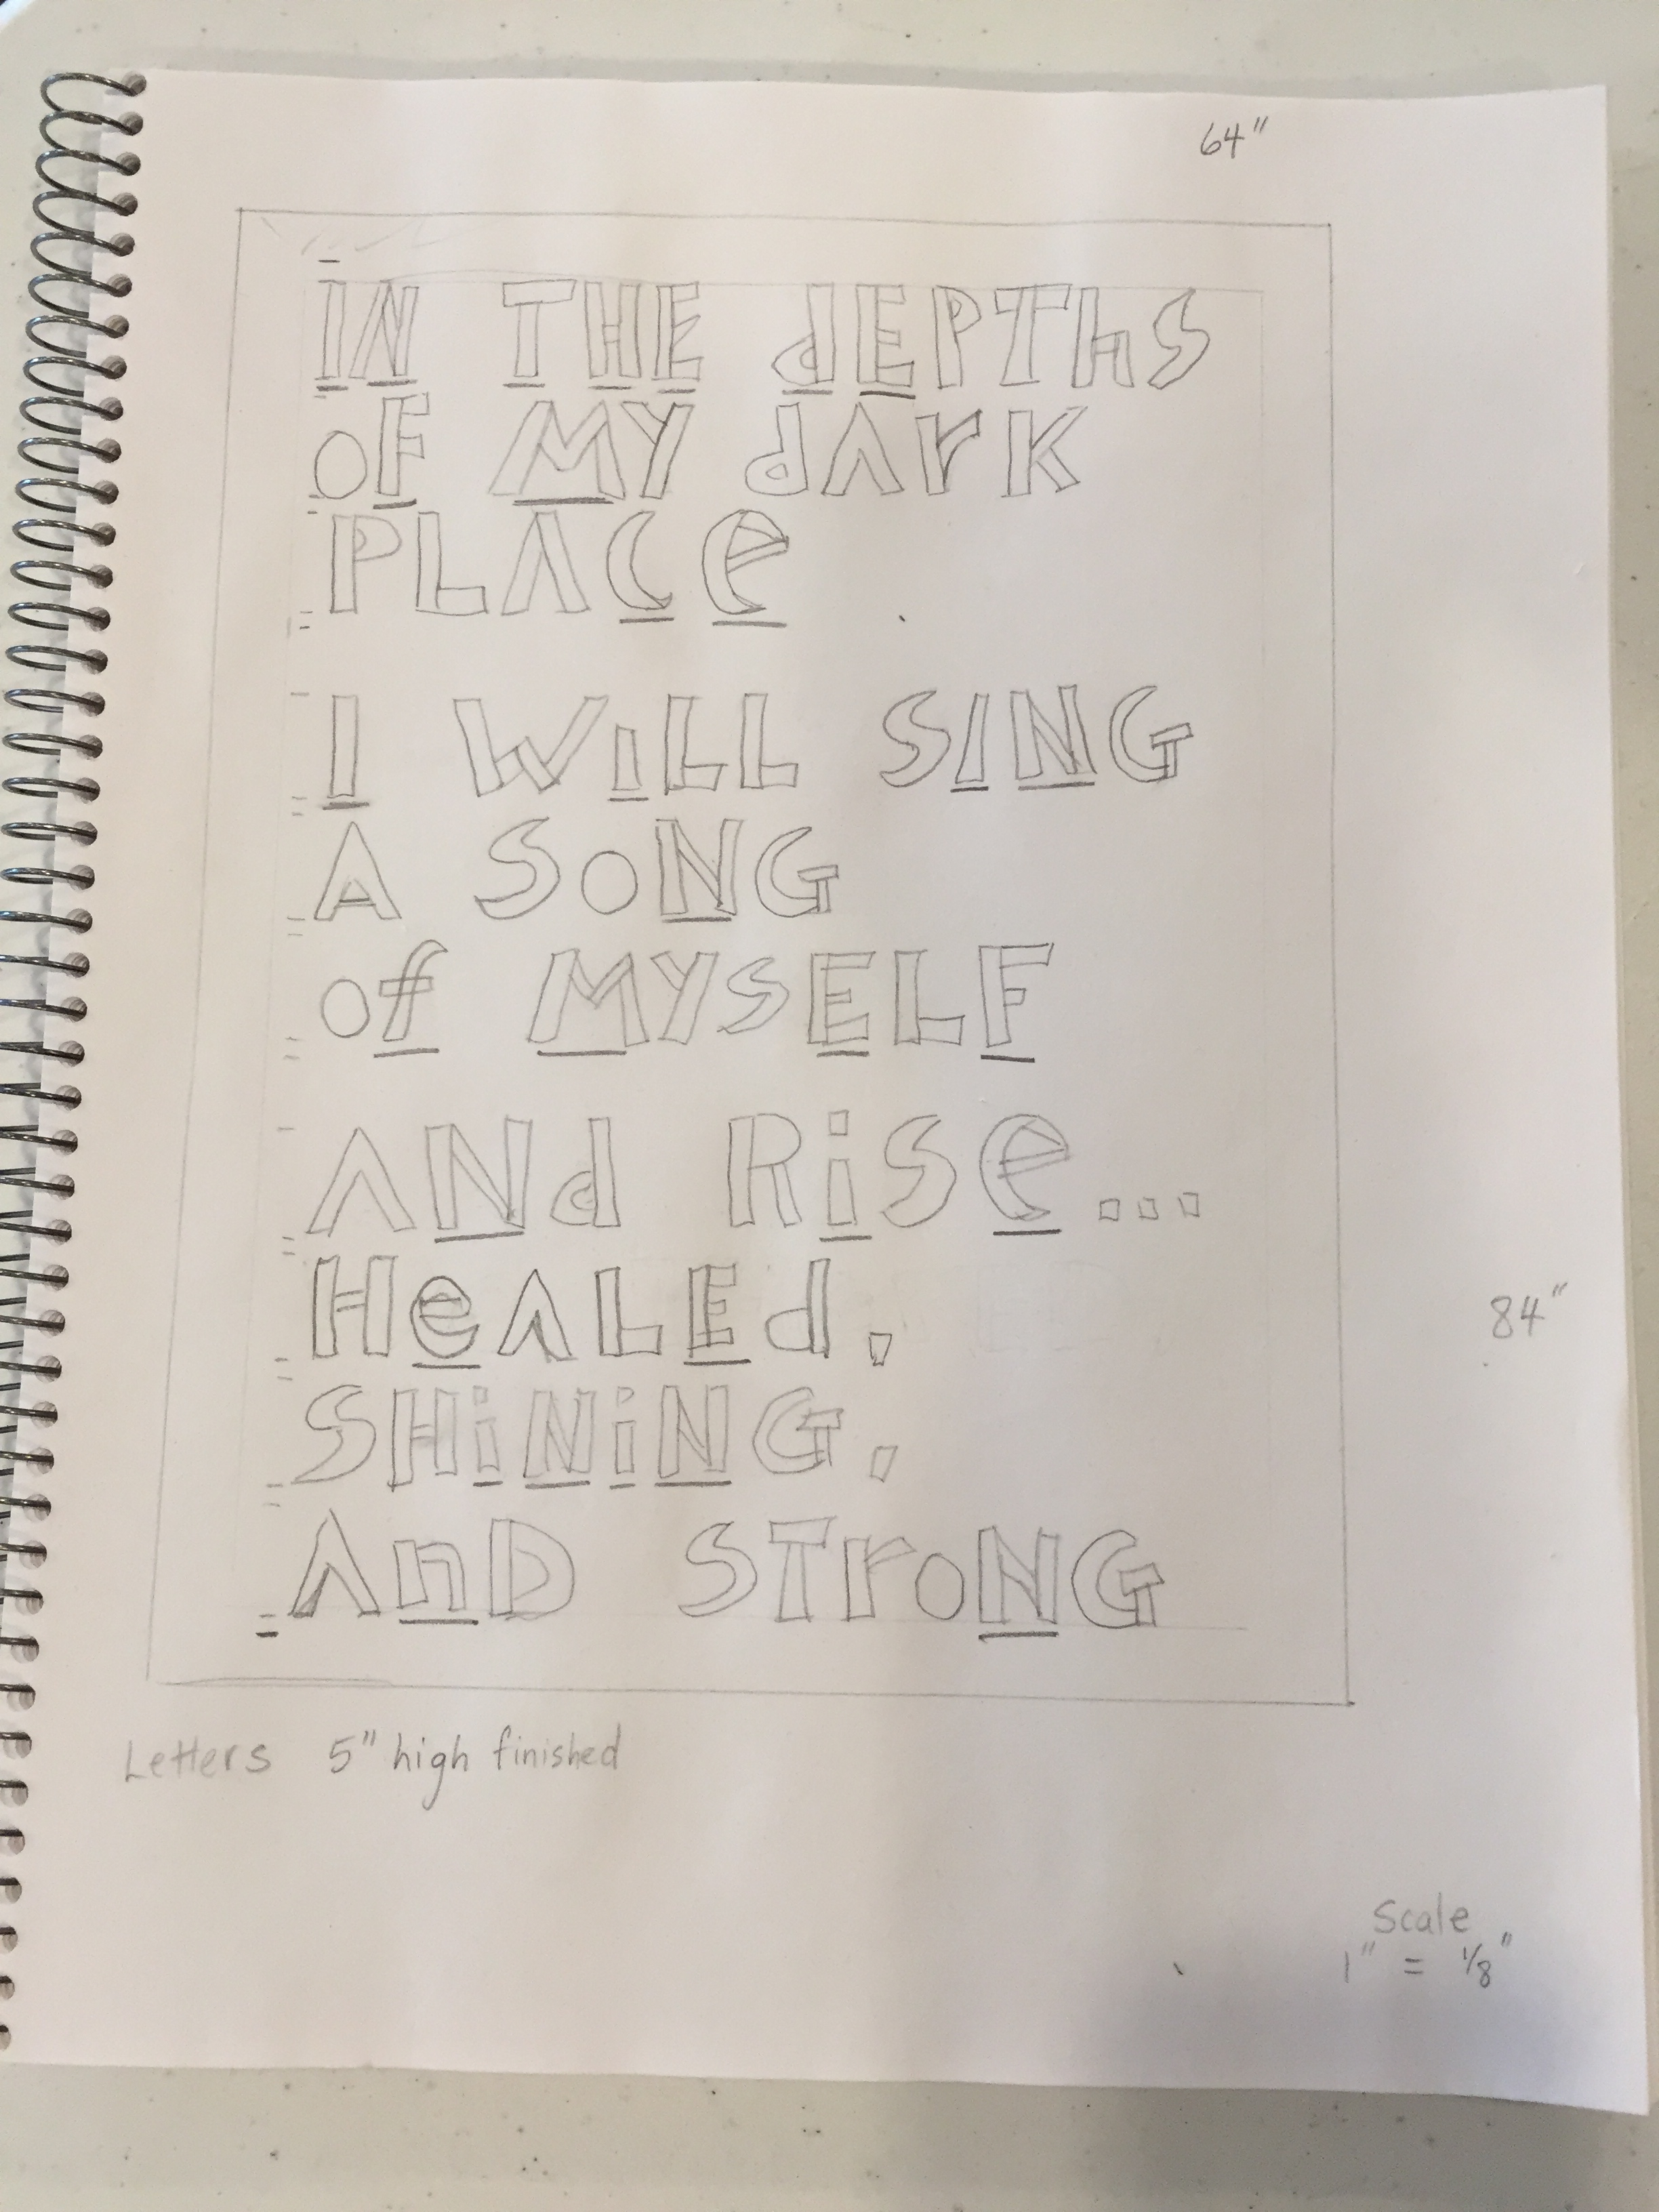 64"
IN THE dEPThS
oF MY dArK
PLACe
I WiLL SING
A SoNG
of MYSELF
ANd RiSe...
HeALEd,
SHiNiNG,
AnD STroNG
84"
Letters 5" high finished
Scale
1" = 1/8"